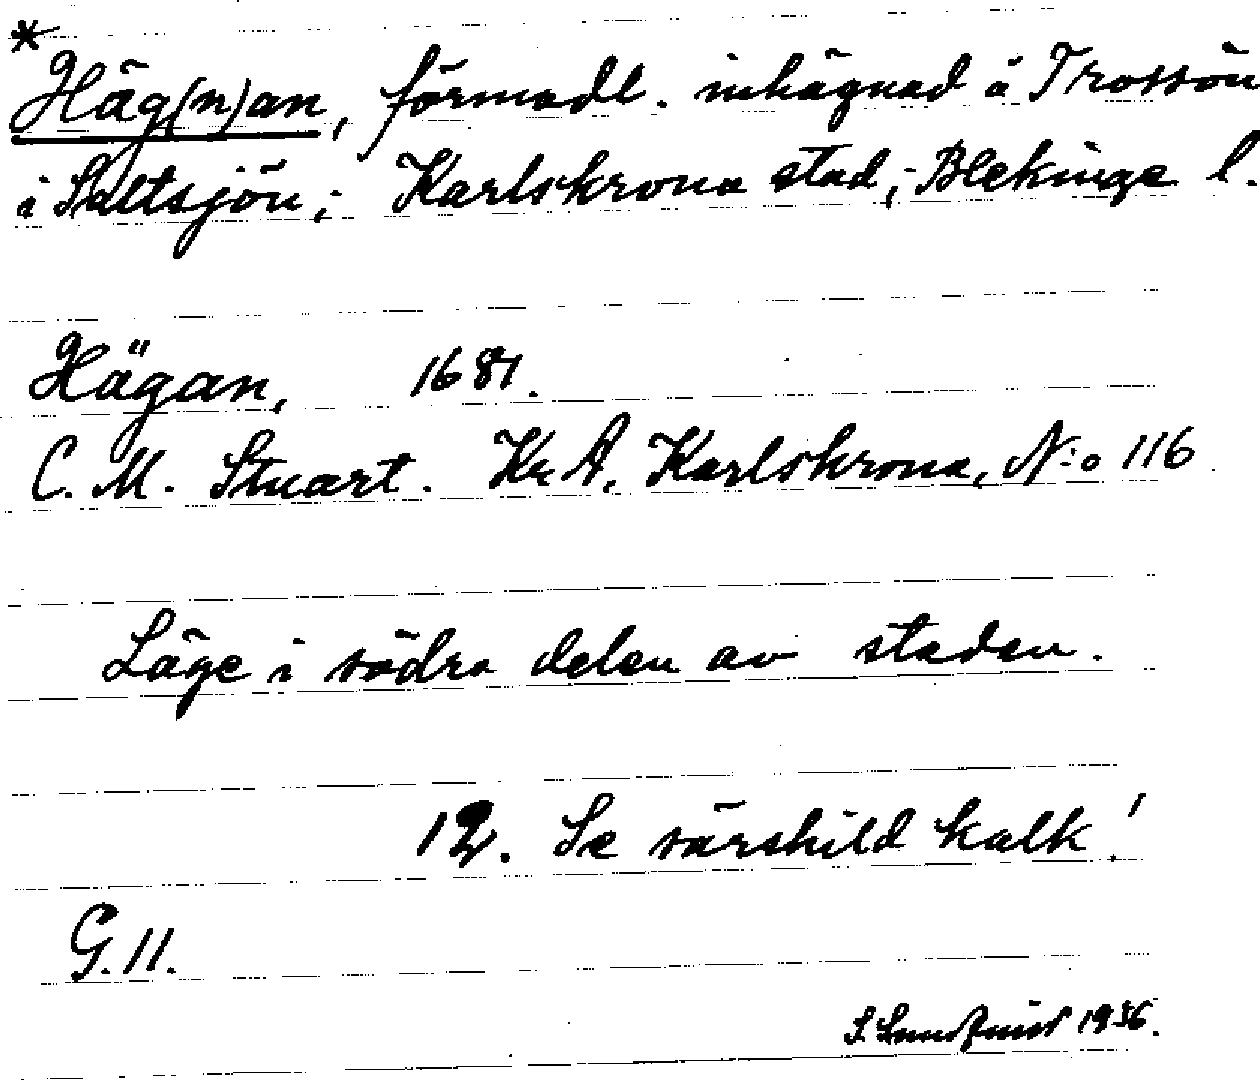 *
Häg(n)an, förmodl. inhägnad å Trossön
i Saltsjön; Karlskrona stad; Blekinge l.
Hägan, 1681.
C. M. Stuart. Kr A. Karlskrona, N:o 116
Läge i södra delen av staden.
12. Se särskild kalk!
G. 11.
S. Lundquist 1936.